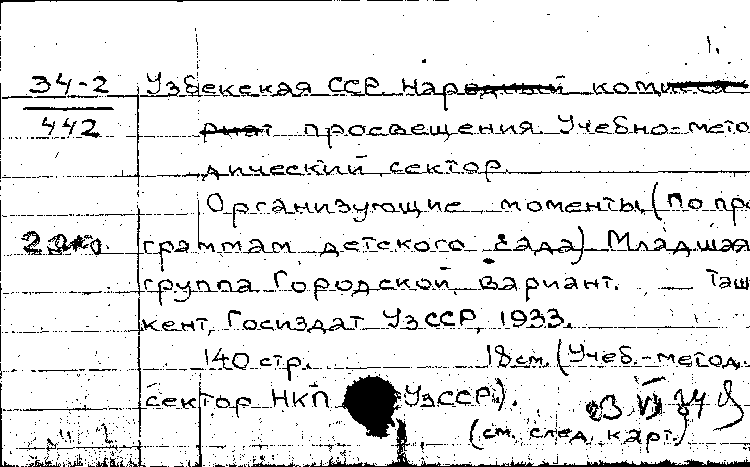 1.
34-2 Узбекская ССР. Народный комисса
442 риат просвещения. Учебно-мето
дический сектор.
Организующие моменты. (По про
2 экз. граммам детского сада) Младшая
группа. Городской вариант. — Таш
кент, Госиздат УзССР, 1933.
140 стр. 18 см. (Учеб.-метод.
сектор НКП УзССР).
23 VI 34
(см. след. карт.)